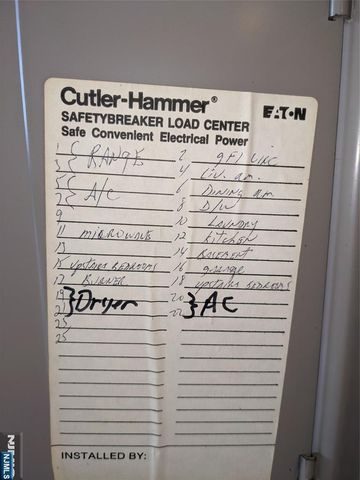 Cutler-Hammer® EATON
SAFETYBREAKER LOAD CENTER
Safe Convenient Electrical Power
1 } RANGE 2 GFI
3 4 LIV. RM.
5 } A/C 6 DINING RM
7 8 D/W
9 10 LAUNDRY
11 MICROWAVE 12 KITCHEN
13 14 BASEMENT
15 UPSTAIRS BEDROOMS 16 GARAGE
17 BURNER 18 UPSTAIRS BEDROOMS
19 } Dryer 20 } AC
21 22
23
25
INSTALLED BY:
NJMLS